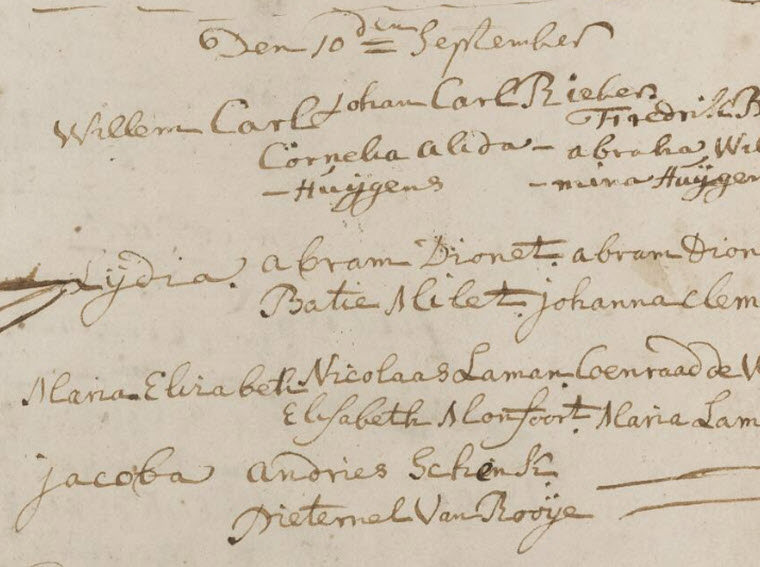 Den 10 den September
Willem Carl Johan Carl Riebers Fredrik B
Cornelia alida - abraha Wil
- Huijgens - mina Huijgen
Lydia. abram Dionet. abram Dion
Batie Milet. Johanna Clem
Maria Elizabeth Nicolaas Laman. Coenraad de W
Elisabeth Monfoort. Maria Lam
jacoba andries Schenk
Pieternel Van Rooije